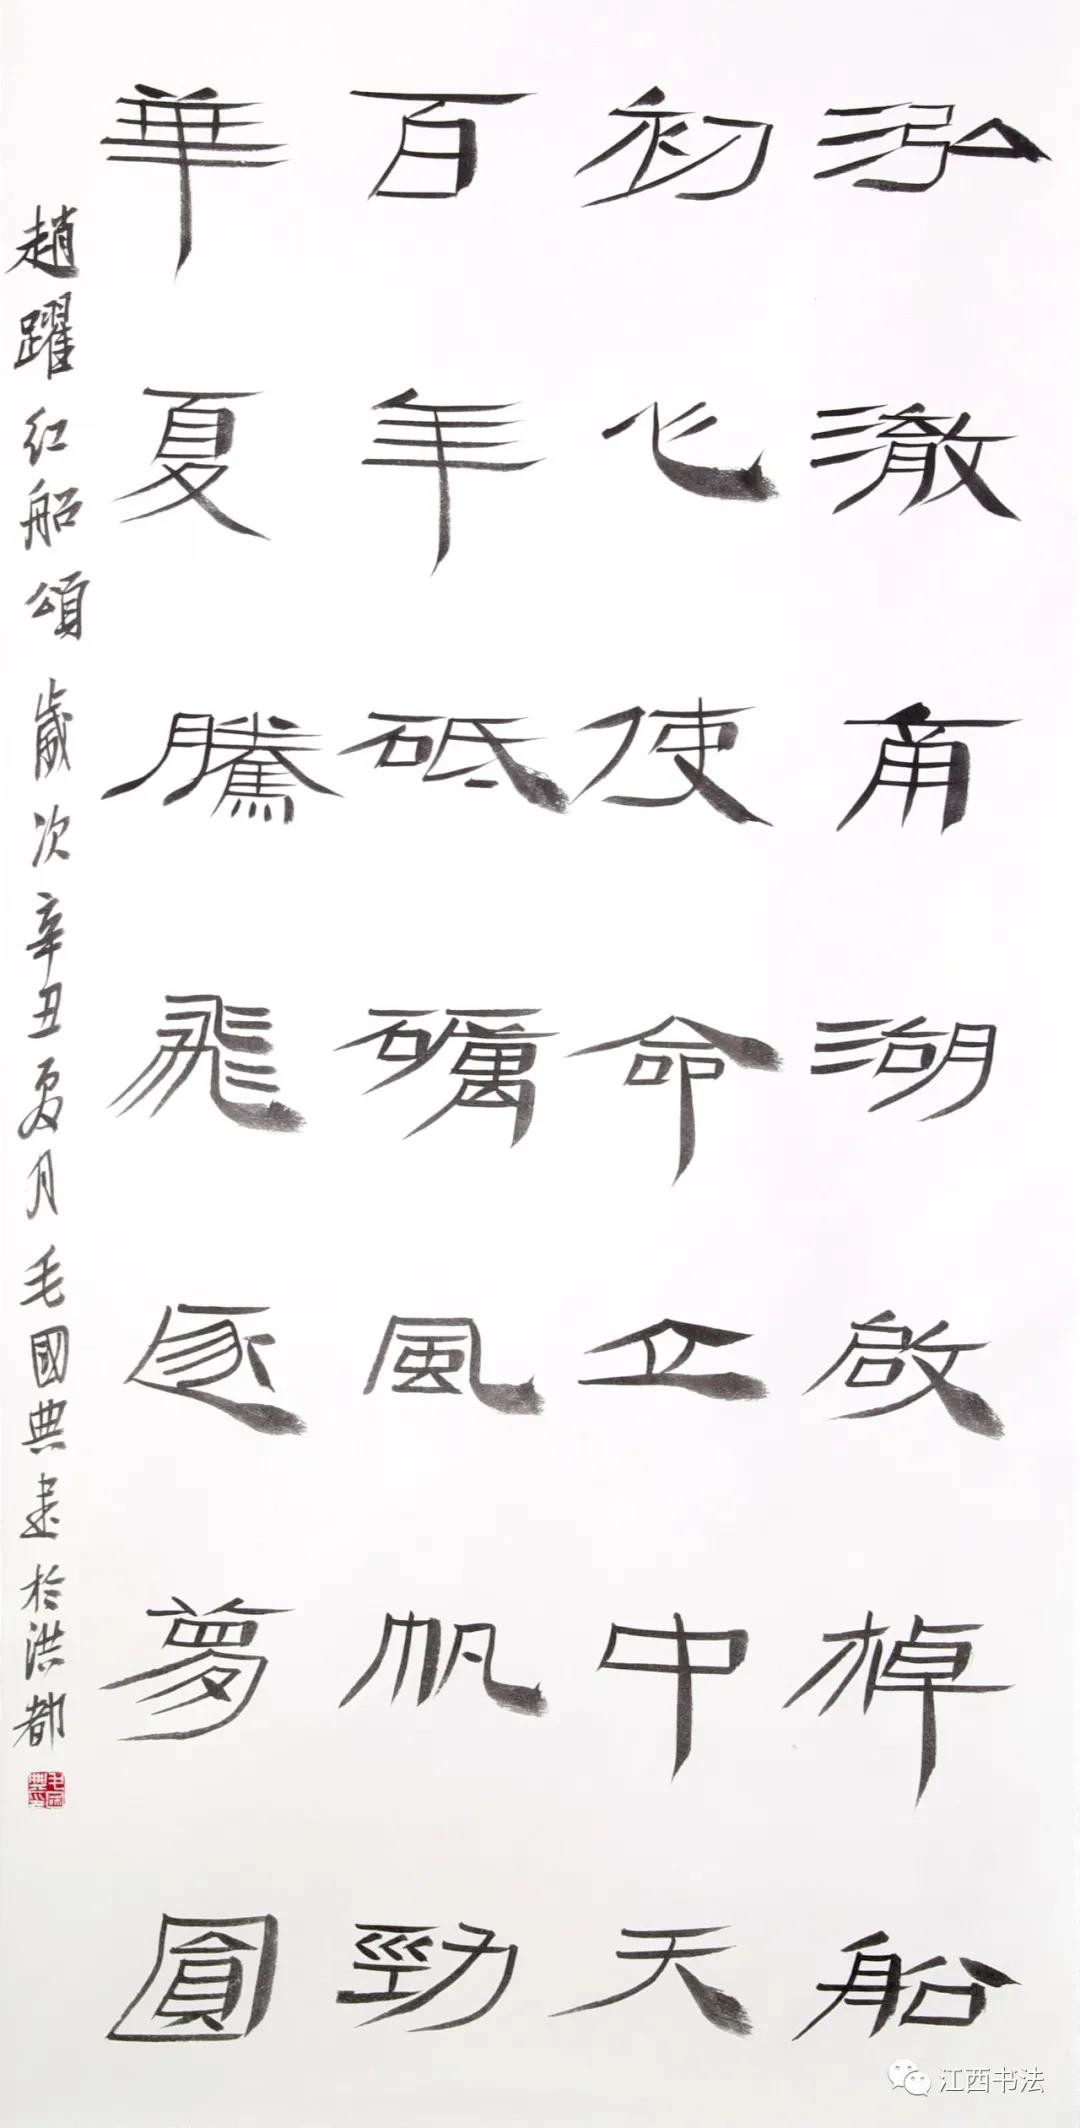 泓澈南湖啟棹船
初心使命立中天
百年砥礪風帆勁
華夏騰飛逐夢圓
趙躍紅船頌 歲次辛丑夏月 毛國典書於洪都
江西书法